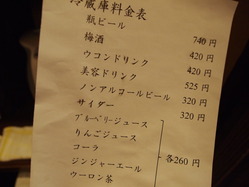 冷蔵庫料金表
瓶ビール 740 円
梅酒 420 円
ウコンドリンク 420 円
美容ドリンク 525 円
ノンアルコールビール 320 円
サイダー 320 円
ブルーベリージュース
りんごジュース
コーラ 各260 円
ジンジャーエール
ウーロン茶